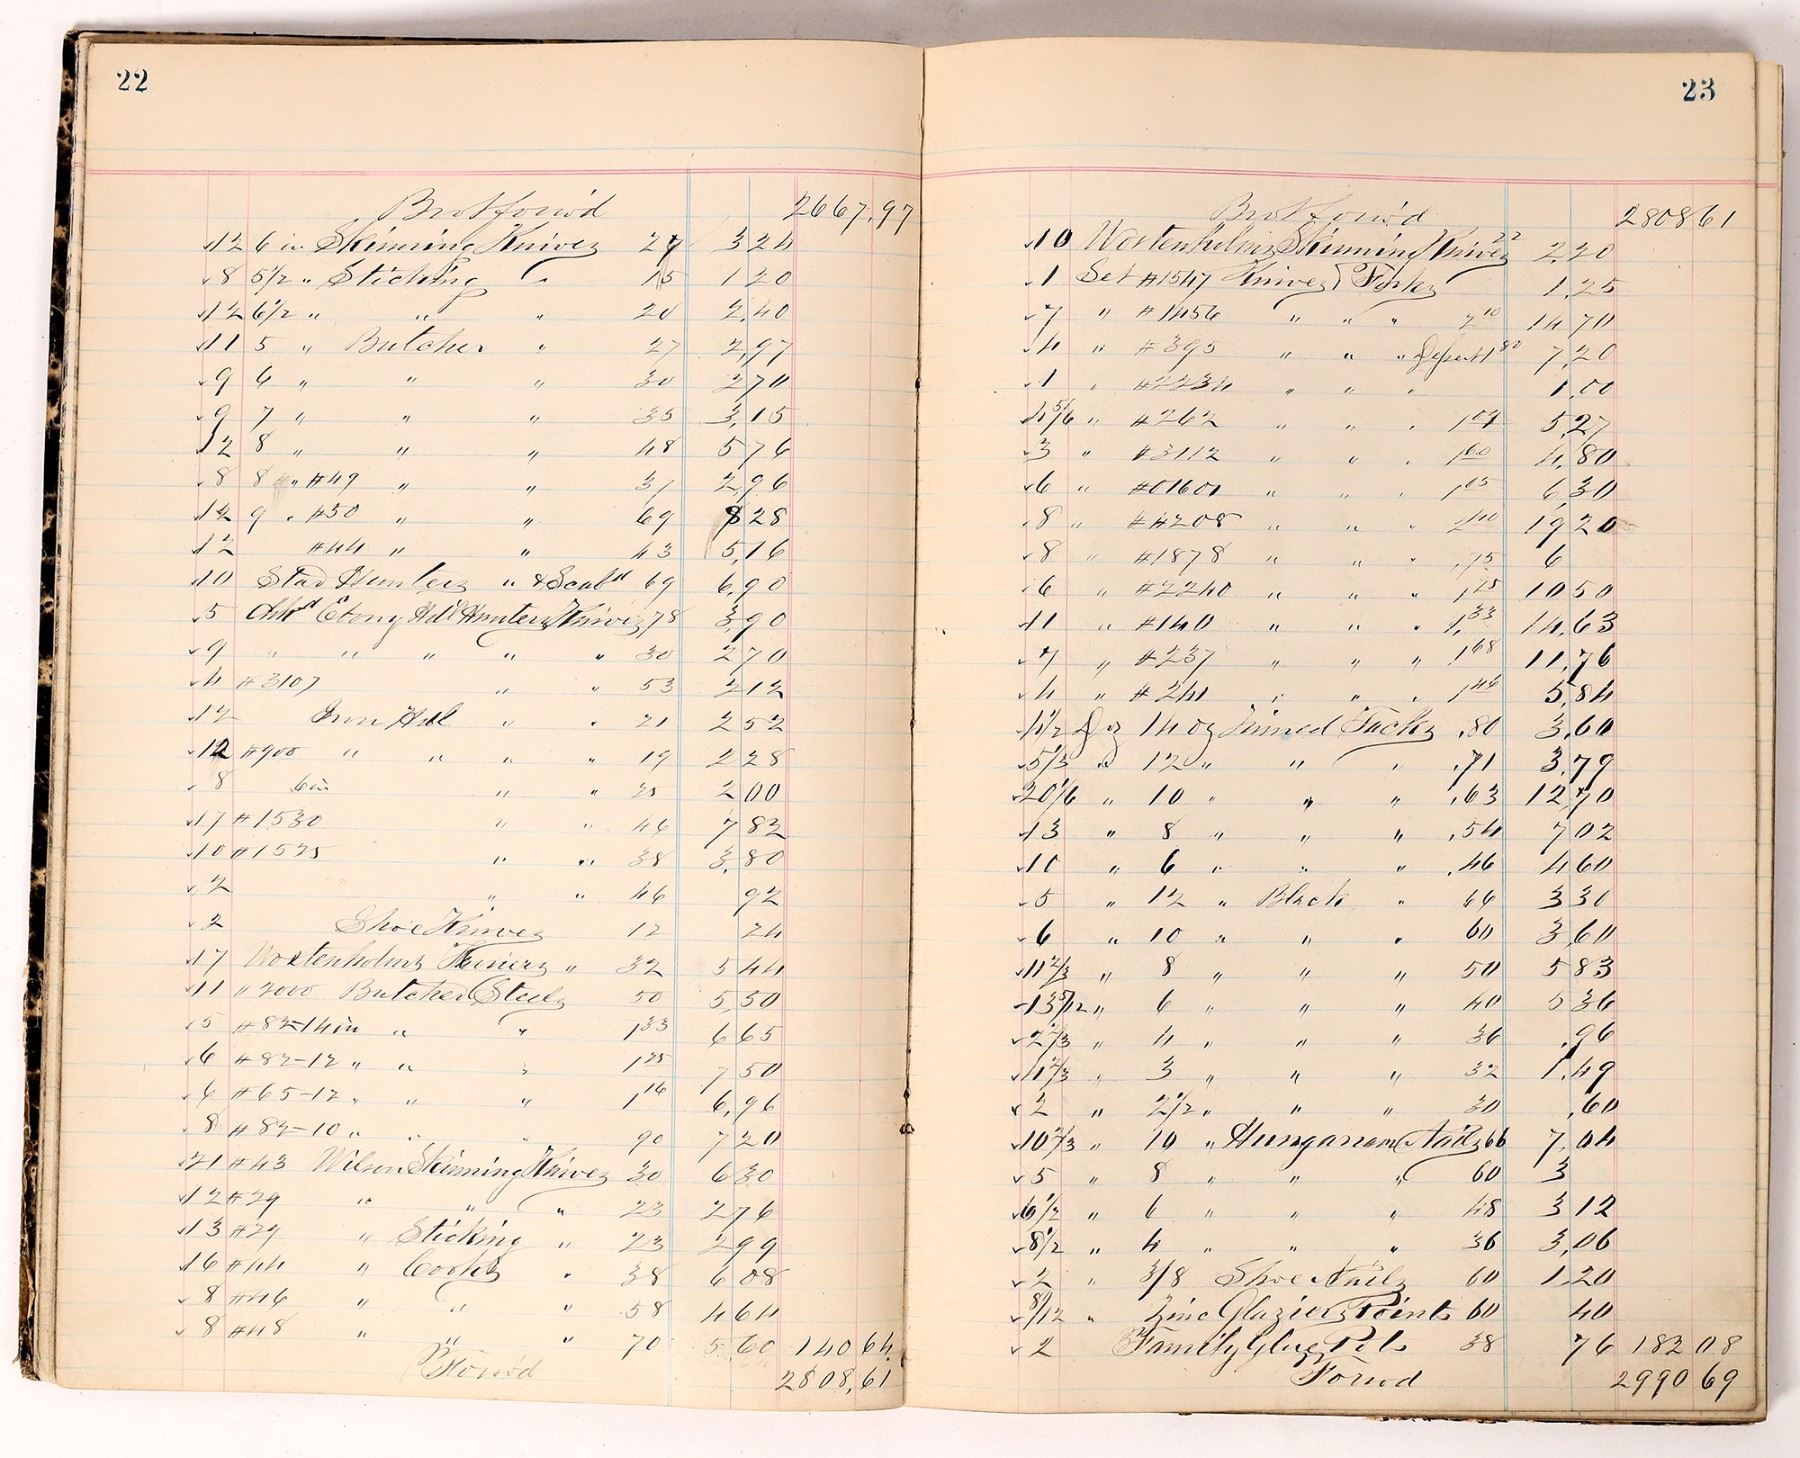 22
Brot forw'd 2667.97
12 6 in Skinning Knives 27 3 24
8 5 1/2 " Sticking " 15 1 20
12 6 1/2 " " " 20 2.40
11 5 " Butcher " 27 2,97
9 6 " " " 30 2 70
9 7 " " " 35 3,15
12 8 " " " 48 5 76
8 8 " #49 " " 37 2,96
12 9 " #50 " " 69 8 28
12 #44 " " 43 5,16
10 Stad Hunters " & Scabd 69 6,90
5 Ebony Hdl Hunters Knives 78 3,90
9 " " " " " 30 2 70
4 #3107 " " 53 2 12
12 Iron Hdl " " 21 2 52
12 #900 " " " " 19 2 28
8 6 in " " 25 2 00
17 #1530 " " 46 7 82
10 #1525 " " 38 3,80
2 " " 46 92
2 Shoe Knives 12 24
17 Wostenholms " 32 5 44
11 " 2000 Butcher Steels 50 5,50
5 #82-14 in " " 1 33 6 65
6 #82-12 " " " 1 25 7 50
6 #65-12 " " " 1 16 6,96
8 #82-10 " " " 90 7 20
21 #43 Wilson Skinning Knives 30 6 30
12 #29 " " " 23 2 76
13 #29 " Sticking " 23 2 99
16 #44 " Cooks " 38 6 08
8 #46 " " " 58 4 64
8 #48 " " " 70 5 60 140 64
Forw'd 2808,61
23
Brot forw'd 2808 61
10 Wostenholms Skinning Knives 22 2,20
1 Set #1547 Knives & Forks 1,25
7 " #1456 " " " 2 10 14 70
4 " #395 " " " 1 80 7,20
1 " #2234 " " " 1,00
4 5/6 " #262 " " " 1 09 5,27
3 " #3112 " " " 1 60 4,80
6 " #01601 " " " 1 05 6,30
8 " #4208 " " " 2 40 19 20
8 " #1878 " " " ,75 6
6 " #2240 " " " 1 75 10 50
11 " #140 " " " 1,33 14,63
7 " #237 " " " 1 68 11,76
4 " #241 " " " 1 46 5,84
4 1/2 Dz 14 oz Tinned Tacks ,80 3,60
5 1/3 " 12 " " " ,71 3,79
20 1/6 " 10 " " " ,63 12,70
13 " 8 " " " ,54 7 02
10 " 6 " " " ,46 4 60
5 " 12 " Black " 66 3 30
6 " 10 " " " 60 3 60
11 2/3 " 8 " " " 50 5 83
13 5/12 " 6 " " " 40 5 36
2 2/3 " 4 " " " 36 .96
4 2/3 " 3 " " " 32 1,49
2 " 2 1/2 " " " 30 ,60
10 2/3 " 10 " Hungarian Nails 66 7,04
5 " 8 " " " 60 3
6 1/2 " 6 " " " 48 3 12
8 1/2 " 4 " " " 36 3,06
2 " 3/8 Shoe Nails 60 1,20
8/12 " Zinc Glaziers Points 60 40
2 Family Glue Pots 38 76 183 08
Forwd 2990 69